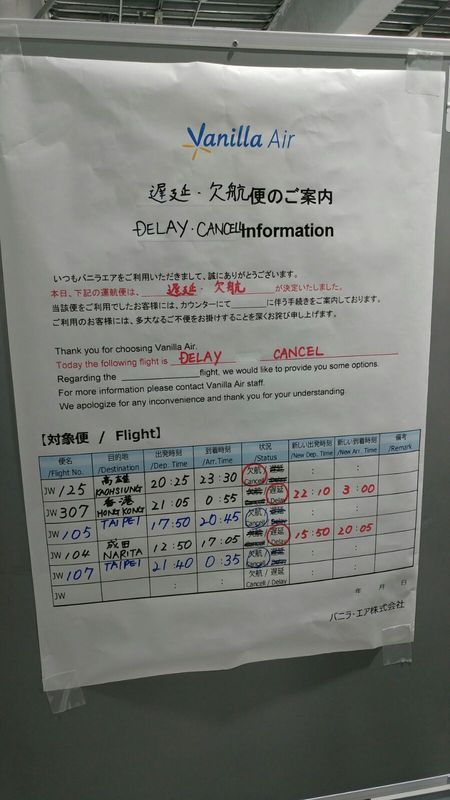 Vanilla Air
遅延・欠航便のご案内
DELAY・CANCELL Information
いつもバニラエアをご利用いただきまして、誠にありがとうございます。
本日、下記の運航便は、 遅延・欠航 が決定いたしました。
当該便をご利用でしたお客様には、カウンターにて に伴う手続きをご案内しております。
ご利用のお客様には、多大なるご不便をお掛けすることを深くお詫び申し上げます。
Thank you for choosing Vanilla Air.
Today the following flight is DELAY CANCEL
Regarding the flight, we would like to provide you some options.
For more information please contact Vanilla Air staff.
We apologize for any inconvenience and thank you for your understanding.
【対象便 / Flight】
便名 目的地 出発時刻 到着時刻 状況 新しい出発時刻 新しい到着時刻 備考
/Flight No. /Destination /Dep. Time /Arr. Time /Status /New Dep. Time /New Arr. Time /Remark
JW 125 高雄 KAOHSIUNG 20:25 23:30 欠航 Cancel : :
JW 307 香港 HONG KONG 21:05 0:55 遅延 Delay 22:10 3:00
JW 105 TAIPEI 17:50 20:45 欠航 Cancel : :
JW 104 成田 NARITA 12:50 17:05 遅延 Delay 15:50 20:05
JW 107 TAIPEI 21:40 0:35 欠航 Cancel : :
JW : : 欠航 / 遅延 Cancel / Delay : :
年 月 日
バニラ・エア株式会社